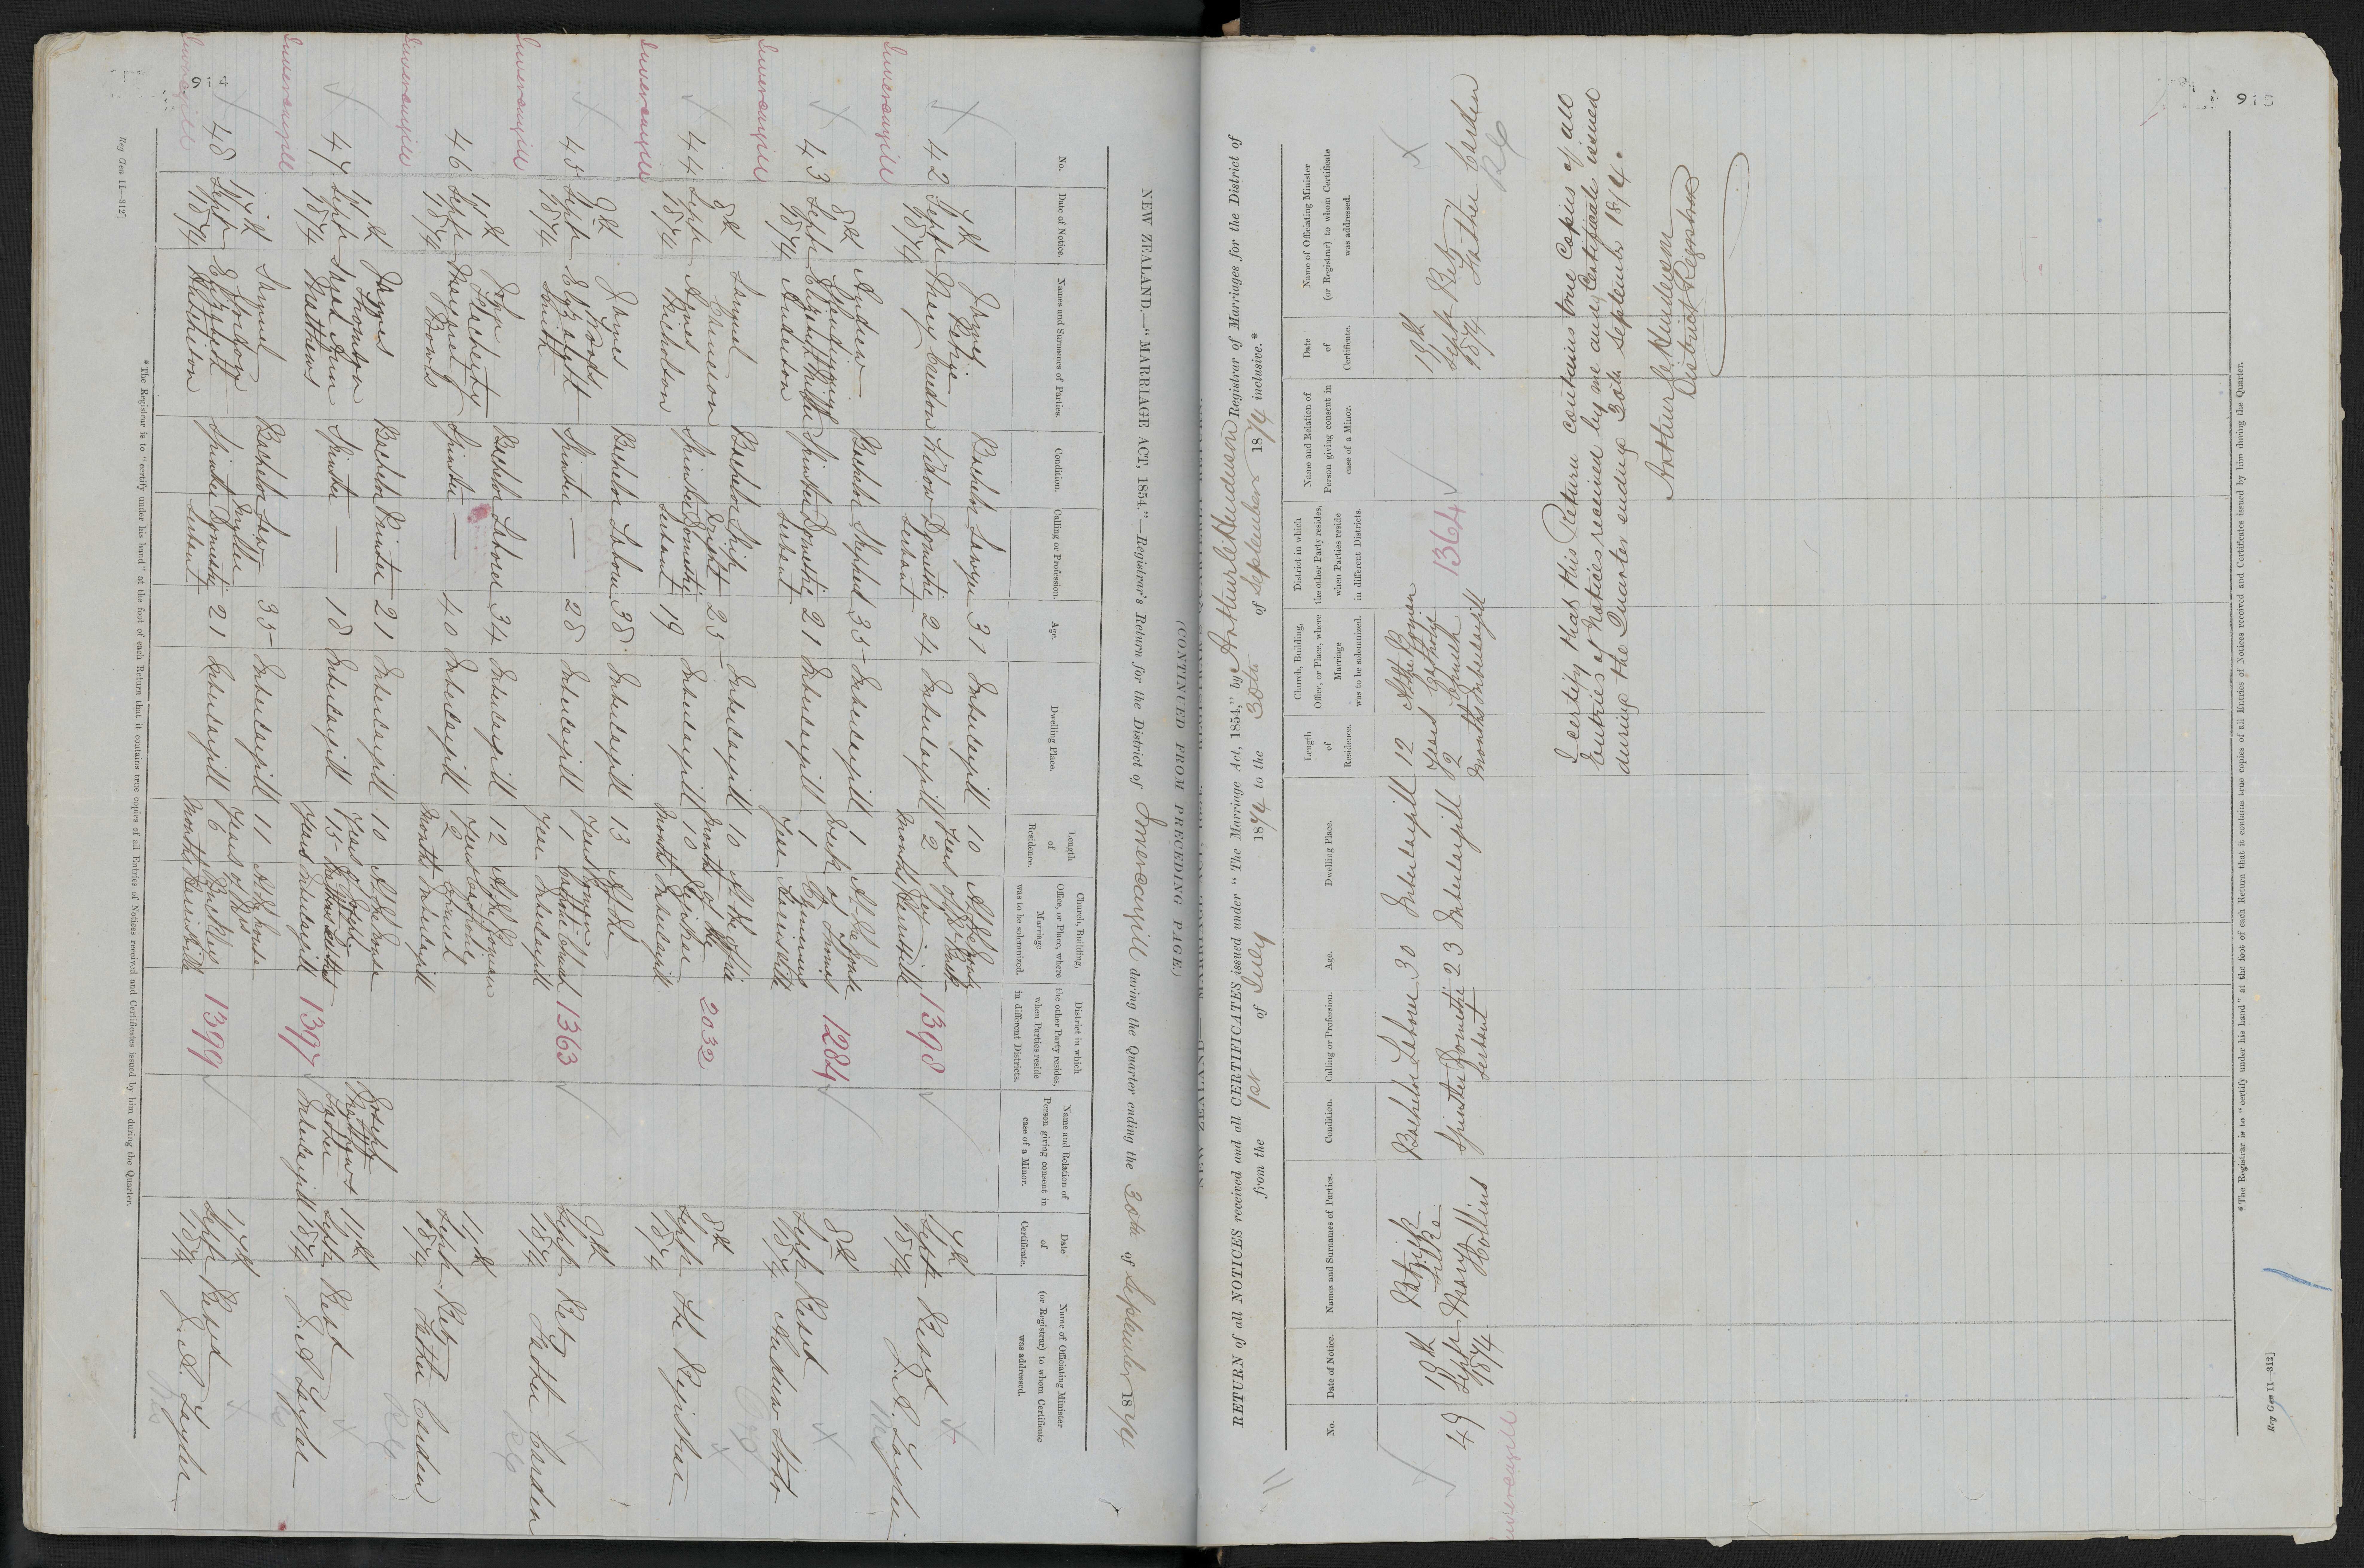 NEW ZEALAND.—"MARRIAGE ACT, 1854."—Registrar's Return for the District of Invercargill during the Quarter ending the 30th of September 1874
No.
Date of Notice.
Names and Surnames of Parties.
Condition.
Calling or Profession.
Age.
Dwelling Place.
Length
of
Residence.
Church, Building,
Office, or Place, where
Marriage
was to be solemnized.
District in which
the other Party resides,
when Parties reside
in different Districts.
Name and Relation of
Person giving consent in
case of a Minor.
Date
of
Certificate.
Name of Officiating Minister
(or Registrar) to whom Certificate
was addressed.
Invercargill
42
7th
Sept
1874
James
Petrie
Mary
Bachelor
Widow
Sawyer
Domestic
Servant
31
24
Invercargill
Invercargill
10
years
2
months
1398
7th
Sept
1874
Revd
Invercargill
43
8th
Sept
1874
Andrew
Elizabeth
Anderson
Bachelor
Spinster
Shepherd
Domestic
Servant
35
21
Invercargill
Invercargill
1
week
1
year
At the house
of
1284
8th
Sept
1874
Revd
Andrew Stobo
Invercargill
44
8th
Sept
1874
Samuel
Agnes
Nicholson
Bachelor
Spinster
Domestic
Servant
25
19
Invercargill
Invercargill
10
months
10
months
At the office
of the
Registrar
Invercargill
2032
8th
Sept
1874
The Registrar
Invercargill
45
9th
Sept
1874
James
Woods
Elizabeth
Smith
Bachelor
Spinster
Labourer
—
38
28
Invercargill
Invercargill
13
years
1
year
At the
Roman
Catholic Church
Invercargill
1363
9th
Sept
1874
Revd
Father Carden
Invercargill
46
11th
Sept
1874
John
Flaherty
Margaret
Bowls
Bachelor
Spinster
Laborer
—
34
40
Invercargill
Invercargill
12
years
2
months
At the Roman
Catholic
Church
Invercargill
11th
Sept
1874
Revd
Father Carden
Invercargill
47
11th
Sept
1874
James
Thomson
Sarah Ann
Matthews
Bachelor
Spinster
Printer
—
21
18
Invercargill
Invercargill
10
years
15
years
At the house
of Joseph
Invercargill
1397
Joseph
Matthews
Father
Invercargill
11th
Sept
1874
Revd
Invercargill
48
17th
Sept
1874
Samuel
Elizabeth
Hutchison
Bachelor
Spinster
Saw
Miller
Domestic
Servant
35
21
Invercargill
Invercargill
11
years
6
months
At the house
of Mrs
1399
17th
Sept
1874
Revd
*The Registrar is to "certify under his hand" at the foot of each Return that it contains true copies of all Entries of Notices received and Certificates issued by him during the Quarter.
Reg Gen 11—312]
(CONTINUED FROM PRECEDING PAGE.)
RETURN of all NOTICES received and all CERTIFICATES issued under "The Marriage Act, 1854," by Registrar of Marriages for the District of
from the 1st of July 1874 to the 30th of September 1874 inclusive.*
No.
Date of Notice.
Names and Surnames of Parties.
Condition.
Calling or Profession.
Age.
Dwelling Place.
Length
of
Residence.
Church, Building,
Office, or Place, where
Marriage
was to be solemnized.
District in which
the other Party resides,
when Parties reside
in different Districts.
Name and Relation of
Person giving consent in
case of a Minor.
Date
of
Certificate.
Name of Officiating Minister
(or Registrar) to whom Certificate
was addressed.
Invercargill
49
18th
Sept
1874
Patrick
Silke
Mary
Collins
Bachelor
Spinster
Laborer
Domestic
Servant
30
23
Invercargill
Invercargill
12
years
2
months
At the Roman
Catholic
Church
Invercargill
1364
18th
Sept
1874
Revd
Father Carden
RC
I certify that this Return contains true Copies of all
Entries of Notices received by me and Certificates issued
during the Quarter ending 30th September 1874.
District Registrar
*The Registrar is to "certify under his hand" at the foot of each Return that it contains true copies of all Entries of Notices received and Certificates issued by him during the Quarter.
Reg Gen 11—312]